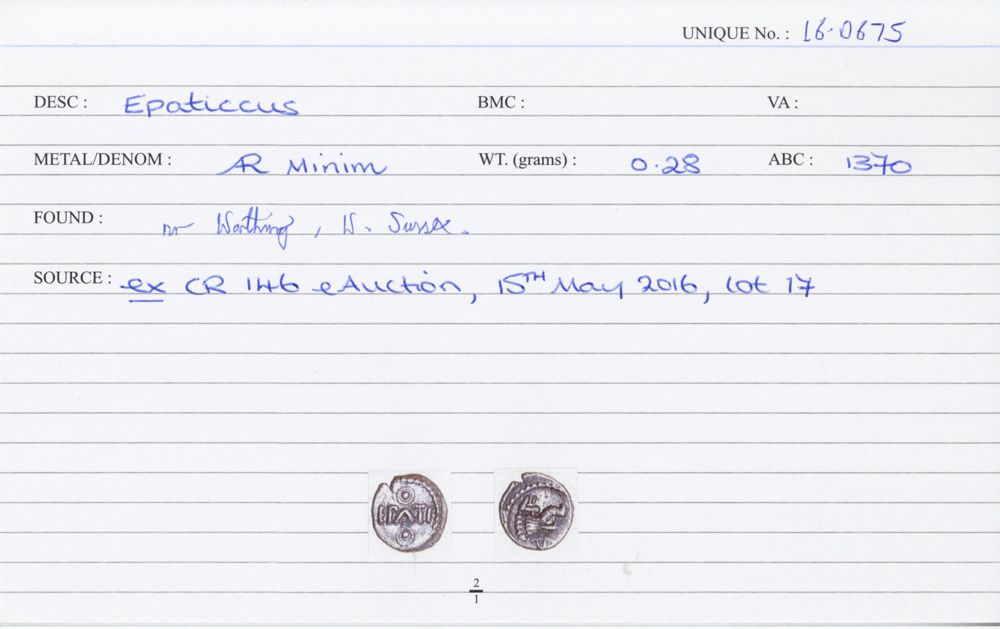 UNIQUE No. : 16.0675
DESC : Epaticcus BMC : VA :
METAL/DENOM : AR Minim WT. (grams) : 0.28 ABC : 1370
FOUND : nr Worthing, W. Sussex.
SOURCE : ex CR 146 eAuction, 15TH May 2016, lot 17
EPATI
2
1